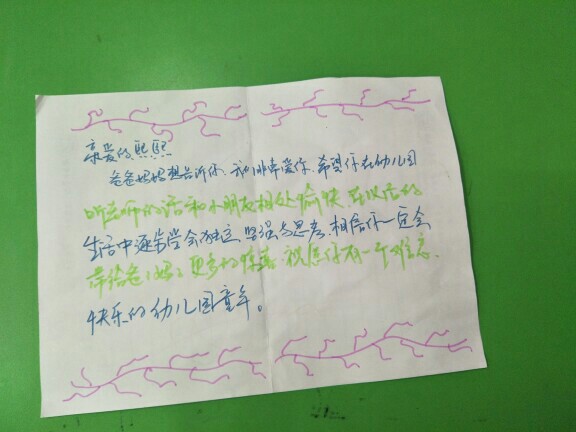 亲爱的熙熙
爸爸妈妈想告诉你，我们非常爱你，希望你在幼儿园
听老师的话和小朋友相处愉快，在以后的
生活中逐步学会独立、坚强与思考，相信你一定会
带给爸爸妈妈更多的惊喜，祝愿你有一个难忘、
快乐的幼儿园童年。